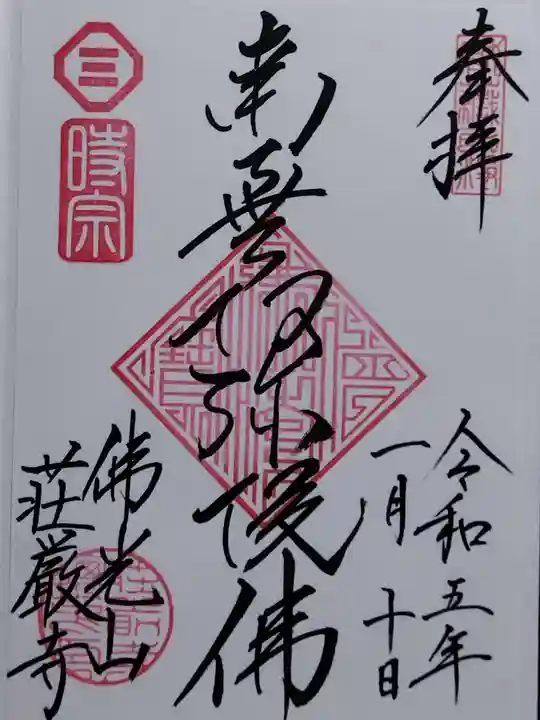 奉拝
令和五年
一月十日
南無阿弥陀佛
時宗
佛光山
荘厳寺